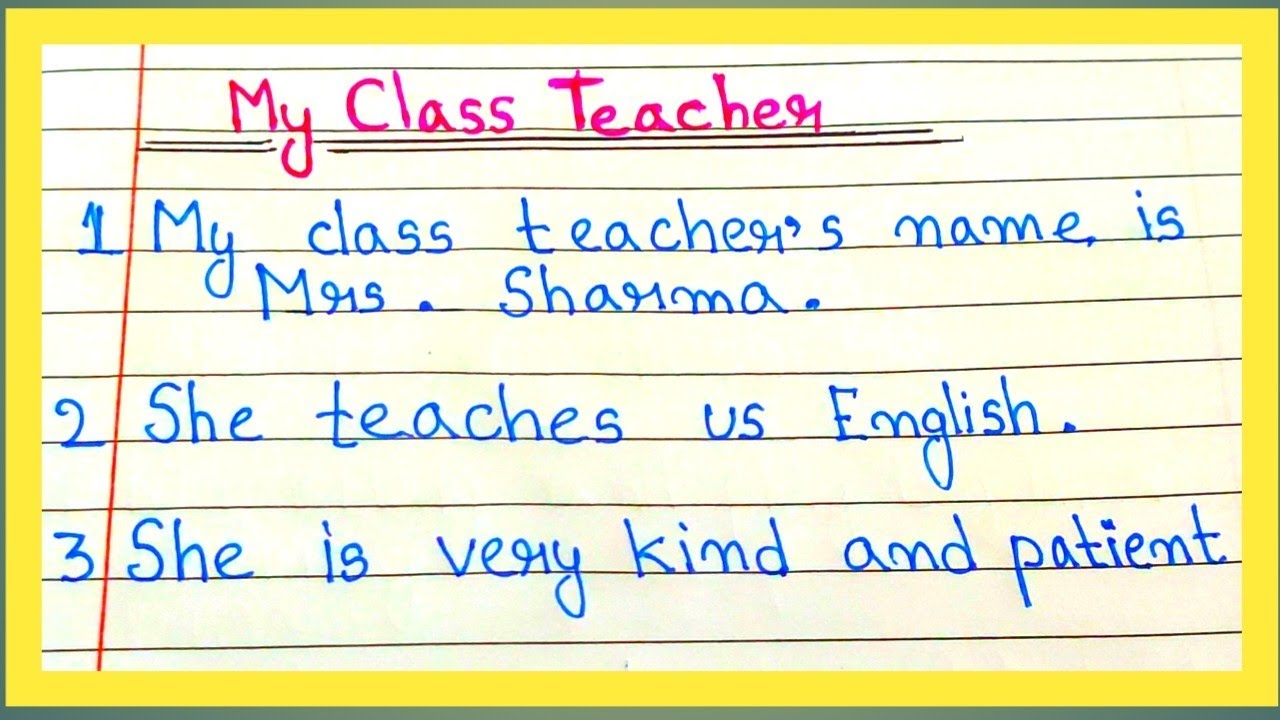 My Class Teacher
1 My class teacher's name is
Mrs. Sharma.
2 She teaches us English.
3 She is very kind and patient